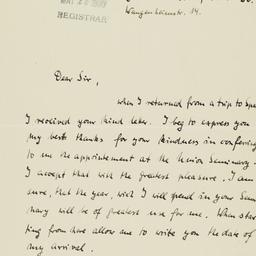 MAY 20 1930
REGISTRAR
Wangenheimstr. 14.
Dear Sir,
when I returned from a trip to Spa
I received your kind letter. I beg to express you
my best thanks for your kindness in confering
to me the appointement at the Union Seminary.
I accept that with the greatest pleasure. I am
sure, that the year, wich I will spend in your Sem
nary will be of greatest use for me. When star
ting from here allow me to write you the date of
my arrivel.